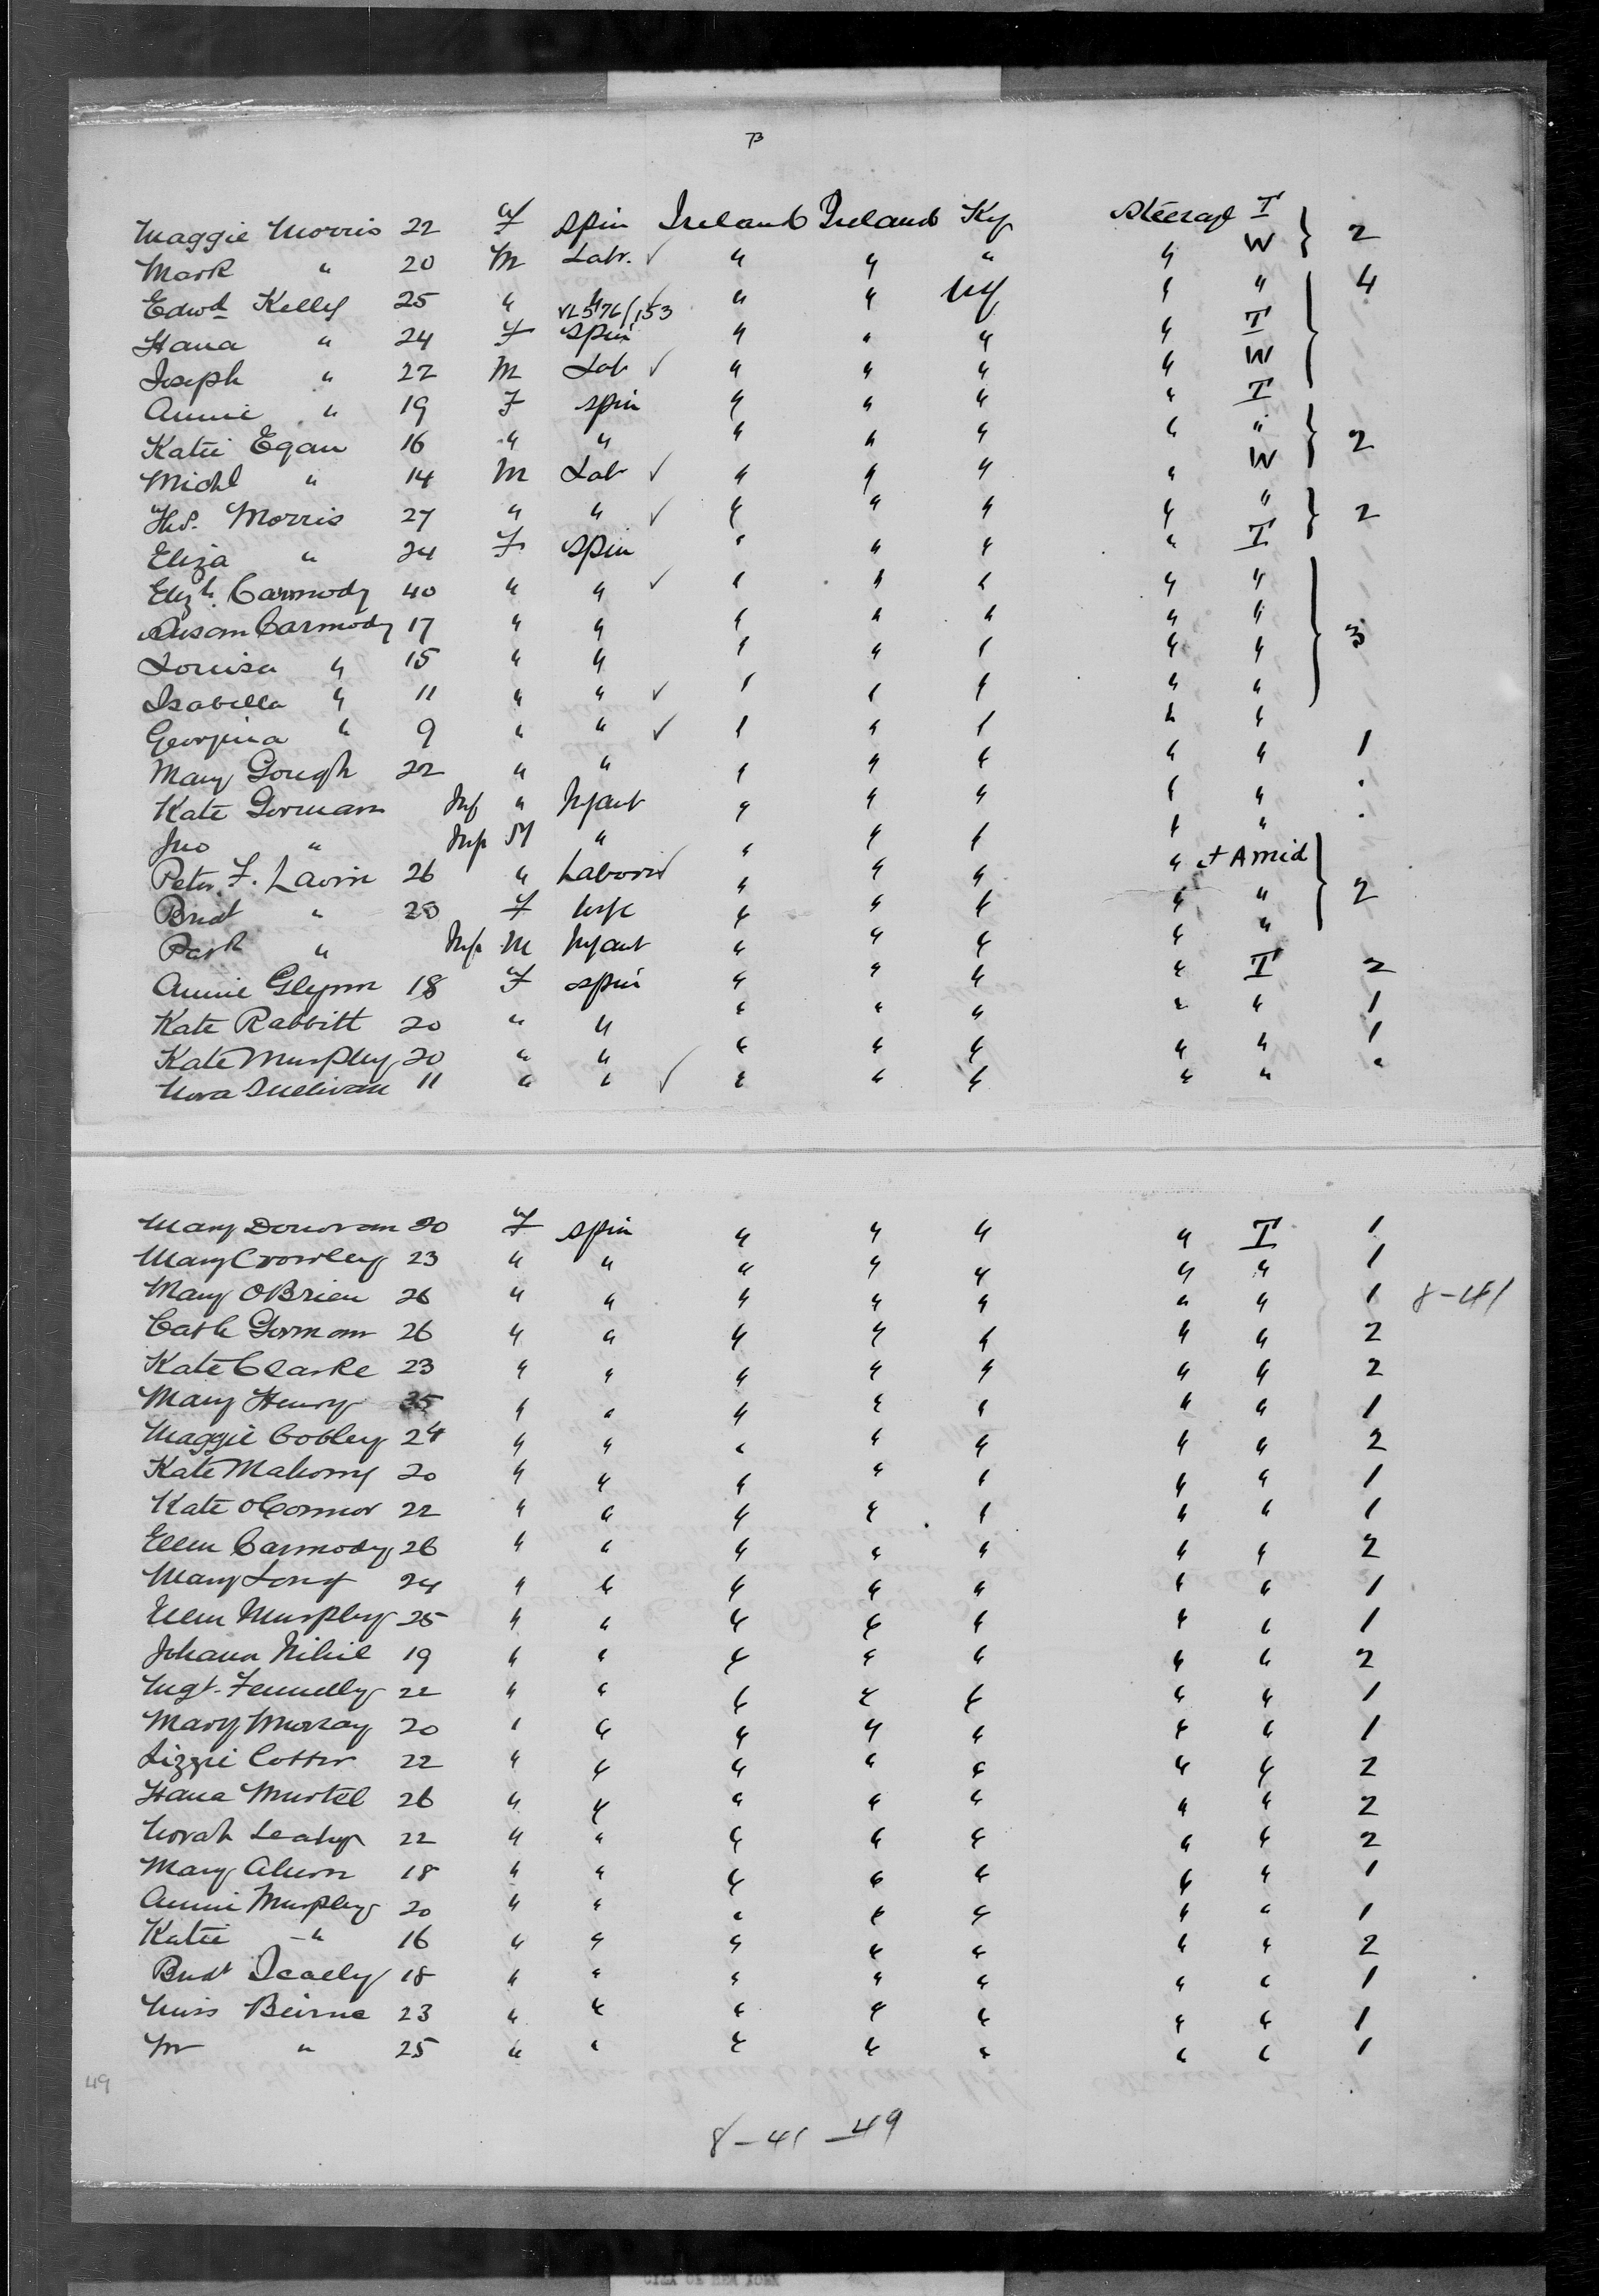 Maggie Morris 22 F spin Ireland Ireland Ky Steerage T } 2
Mark " 20 M Labr. ✓ " " " " W
Edwd Kelly 25 " " ✓ " " NY " " } 4
VL576/153
Hana " 24 F spin " " " " T
Joseph " 22 M Lab ✓ " " " " W
Annie " 19 F spin " " " " T
Katie Egan 16 " " " " " " " } 2
Michl " 14 M Lab ✓ " " " " W
Ths. Morris 27 " " ✓ " " " " " } 2
Eliza " 24 F spin " " " " T
Elizh. Carmody 40 " " ✓ " " " " " } 3
Susan Carmody 17 " " " " " " "
Louisa " 15 " " " " " " "
Isabella " 11 " " ✓ " " " " "
Georgina " 9 " " ✓ " " " " "
Mary Gough 22 " " " " " " " 1
Kate Gorman Inf " Infant " " " " " .
Jno " Inf M " " " " " " .
Peter F. Lavin 26 " Laborer ✓ " " " " at Amid } 2
Bridt " 25 F wife " " " " "
Patk " Inf M Infant " " " " "
Annie Glynn 18 F spin " " " " T 2
Kate Rabbitt 20 " " " " " " " 1
Kate Murphy 20 " " " " " " " 1
Nora Sullivan 11 " " ✓ " " " " " "
Mary Donovan 20 F spin " " " " T 1
Mary Crowley 23 " " " " " " " 1
Mary OBrien 26 " " " " " " " 1 8-41
Cath Gorman 26 " " " " " " " 2
Kate Clarke 23 " " " " " " " 2
Mary Henry 35 " " " " " " " 1
Maggie Cobley 24 " " " " " " " 2
Kate Mahony 20 " " " " " " " 1
Kate OConnor 22 " " " " " " " 1
Ellen Carmody 26 " " " " " " " 2
Mary Long 24 " " " " " " " 1
Ellen Murphy 25 " " " " " " " 1
Johana Nihil 19 " " " " " " " 2
Mgt. Fennelly 22 " " " " " " " 1
Mary Murray 20 " " " " " " " 1
Lizzie Cotter 22 " " " " " " " 2
Hana Murtel 26 " " " " " " " 2
Norah Leahy 22 " " " " " " " 2
Mary Ahern 18 " " " " " " " 1
Annie Murphy 20 " " " " " " " 1
Katie " 16 " " " " " " " 2
Bridt Scally 18 " " " " " " " 1
Miss Beirne 23 " " " " " " " 1
M " 25 " " " " " " " 1
49
8-41-49
CITY OF NEW YORK